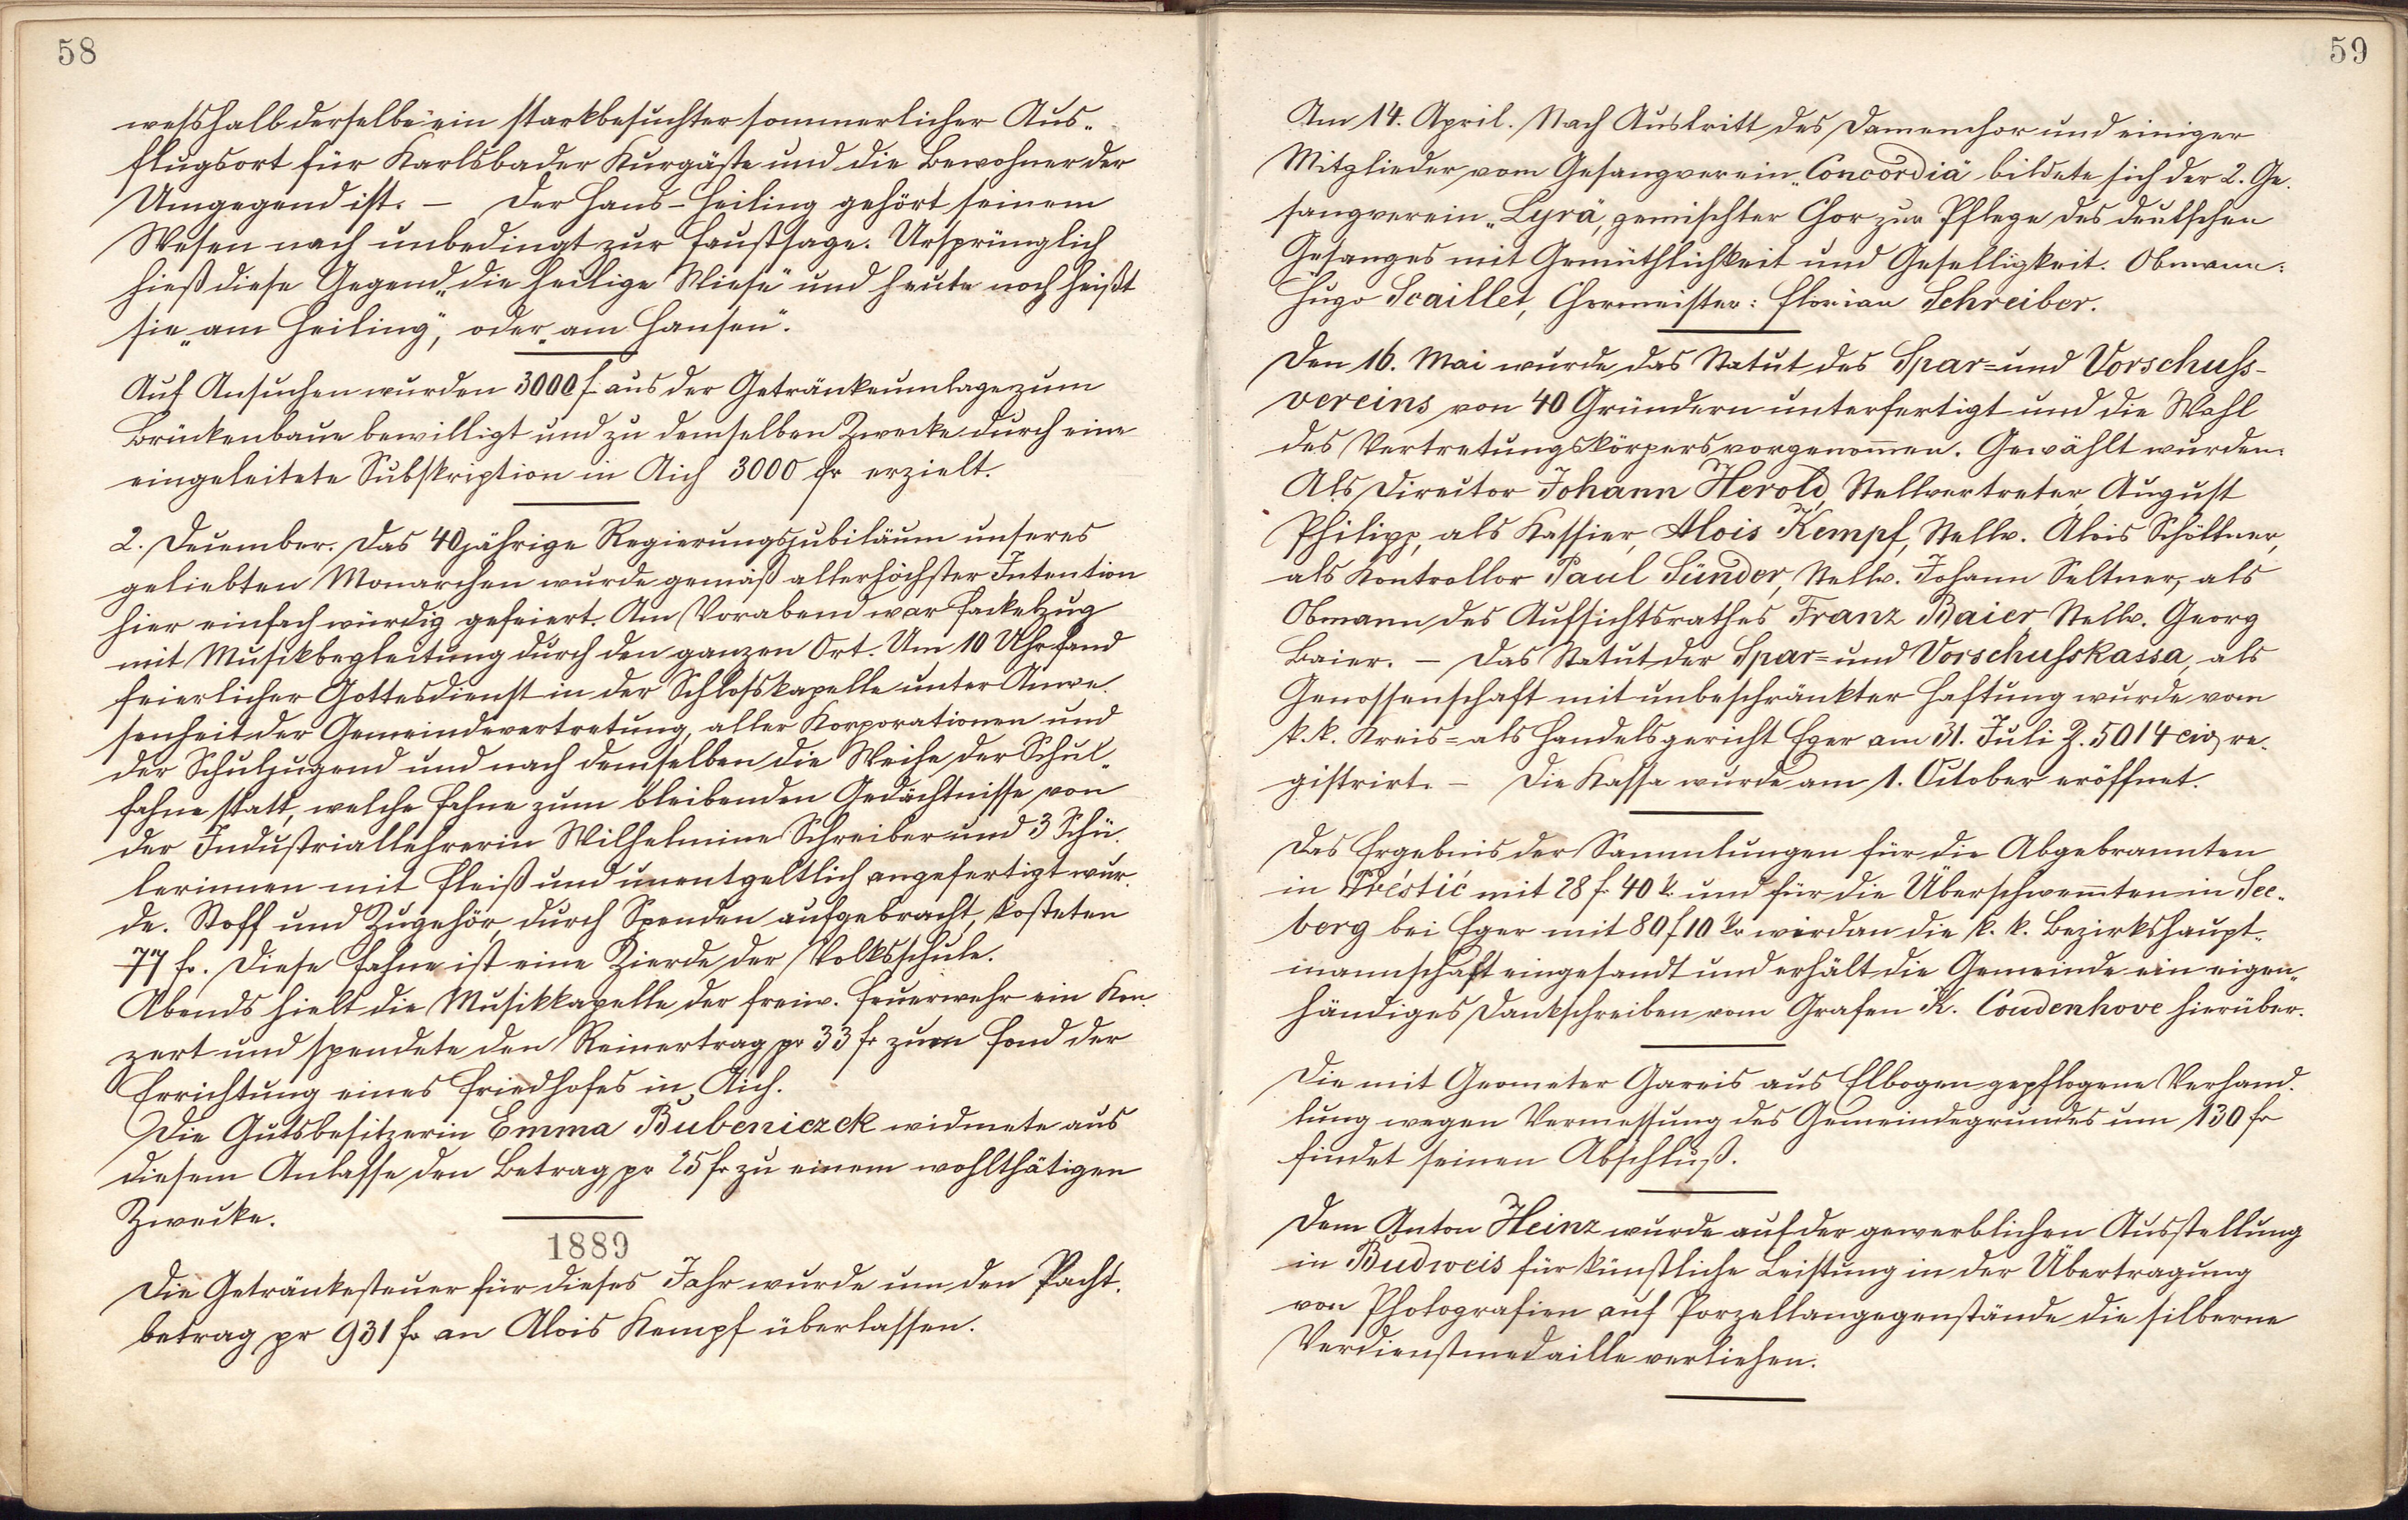 58
wesshalb derselbe ein starkbesuchter sommerlicher Aus-
flugsort für Karlsbader Kurgäste und die Bewohner der
Umgegend ist. – Der Hans-Heiling gehört seinem
Wesen nach unbedingt zur Faustsage. Ursprünglich
hieß diese Gegend „die heilige Wiese" und heute noch heißt
sie „am Heiling", oder „am Hansen".
Auf Ansuchen wurden 3000 f aus der Getränkeumlage zum
Brückenbaue bewilligt und zu demselben Zwecke durch eine
eingeleitete Subskription in Aich 3000 fr erzielt.
2. December. Das 40jährige Regierungsjubiläum unseres
geliebten Monarchen wurde gemäß allerhöchster Intention
hier einfach würdig gefeiert. Am Vorabend war Fackelzug
mit Musikbegleitung durch den ganzen Ort. Um 10 Uhr fand
feierlicher Gottesdienst in der Schlosskapelle unter Anwe-
senheit der Gemeindevertretung, aller Korporationen und
der Schuljugend und nach demselben die Weihe der Schul-
fahne statt, welche Fahne zum bleibenden Gedächtnisse von
der Industriallehrerin Wilhelmine Schreiber und 3 Schü-
lerinnen mit Fleiß und unentgeltlich angefertigt wur-
de. Stoff und Zugehör, durch Spenden aufgebracht, kosteten
77 fr. Diese Fahne ist eine Zierde der Volksschule.
Abends hielt die Musikkapelle der freiw. Feuerwehr ein Kon-
zert und spendete den Reinertrag pr 33 fr zum Fond der
Errichtung eines Friedhofes in Aich.
Die Gutsbesitzerin Emma Bubeniczek widmete aus
diesem Anlasse den Betrag pr 25 fr zu einem wohlthätigen
Zwecke.
1889
Die Getränkesteuer für dieses Jahr wurde um den Pacht-
betrag pr 931 fr an Alois Kempf überlassen.
59
Am 14. April. Nach Austritt des Damenchor und einiger
Mitglieder vom Gesangverein „Concordia" bildete sich der 2. Ge-
sangverein „Lyra", gemischter Chor zur Pflege des deutschen
Gesanges mit Gemüthlichkeit und Geselligkeit. Obmann:
Hugo Scaillet, Chormeister: Florian Schreiber.
Den 16. Mai wurde das Statut des Spar= und Vorschuss-
vereins von 40 Gründern unterfertigt und die Wahl
des Vertretungskörpers vorgenom̄en. Gewählt wurden:
Als Director Johann Herold, Stellvertreter August
Philipp, als Kassier, Alois Kempf, Stellv. Alois Schöttner,
als Kontrollor Paul Sünder, Stellv. Johann Seltner, als
Obmann des Aufsichtsrathes Franz Baier Stellv. Georg
Baier. – Das Statut der Spar= und Vorschusskassa, als
Genossenschaft mit unbeschränkter Haftung wurde vom
k. k. Kreis= als Handelsgericht Eger am 31. Juli Z. 5014 civ. re-
gistrirt. – Die Kassa wurde am 1. October eröffnet.
Das Ergebnis der Sammlungen für die Abgebrannten
in Přéstić mit 28 f. 40 k. und für die Überschwem̄ten in See-
berg bei Eger mit 80 f 10 kr wird an die k. k. Bezirkshaupt-
mannschaft eingesandt und erhält die Gemeinde ein eigen-
händiges Dankschreiben vom Grafen K. Coudenhove hierüber.
Die mit Geometer Gareis aus Elbogen gepflogene Verhand-
lung wegen Vermessung des Gemeindegrundes um 130 fr
findet seinen Abschluß.
Dem Anton Heinz wurde auf der gewerblichen Ausstellung
in Budweis für künstliche Leistung in der Übertragung
von Photografien auf Porzellangegenstände die silberne
Verdienstmedaille verliehen.